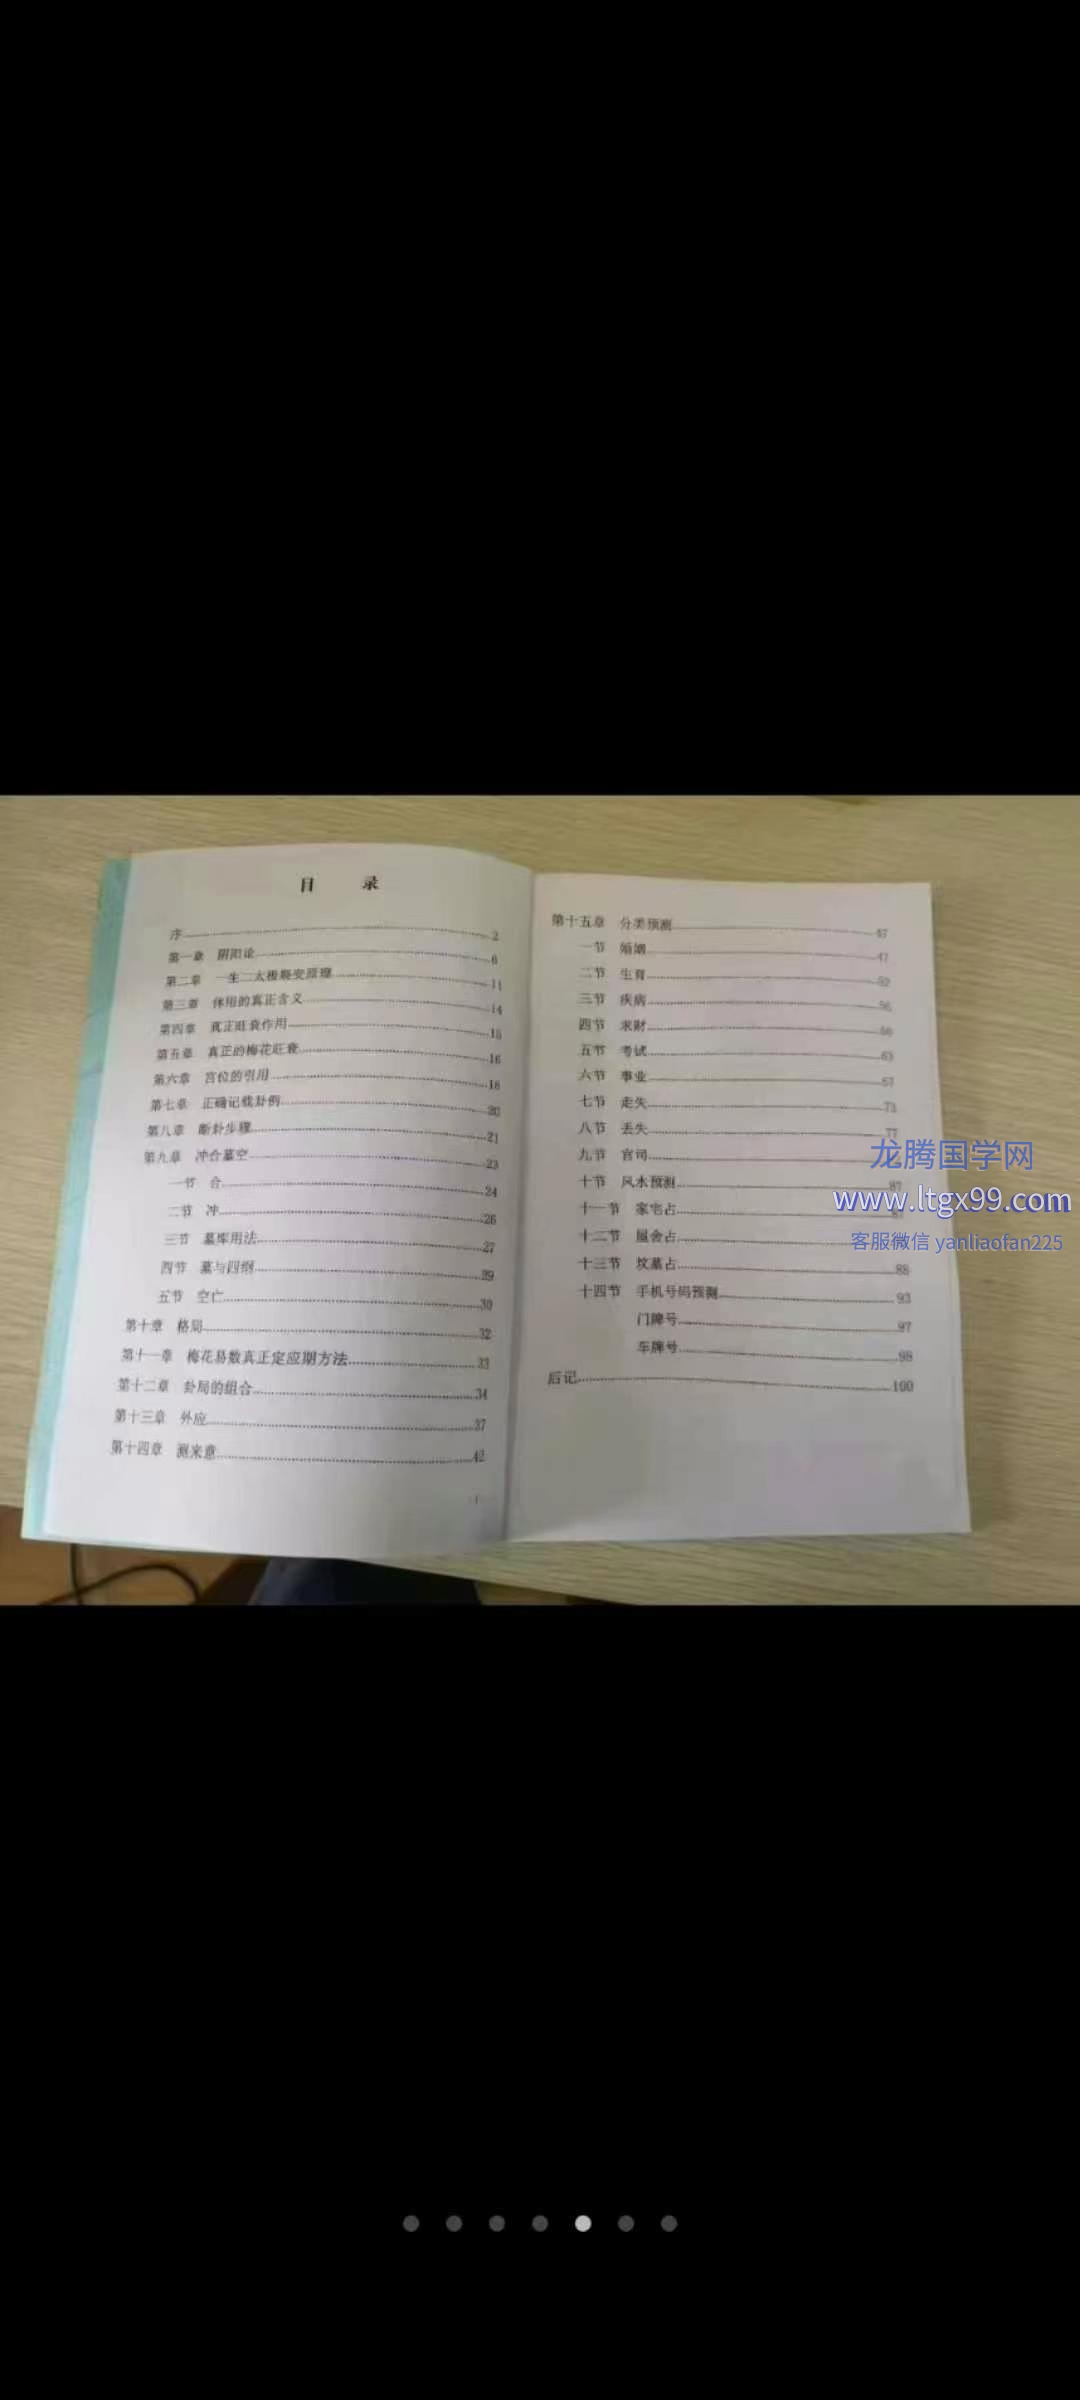 目 录
序 2
第一章 阴阳论 6
第二章 一生二太极裂变原理 11
第三章 体用的真正含义 14
第四章 真正旺衰作用 15
第五章 真正的梅花旺衰 16
第六章 宫位的引用 18
第七章 正确记载卦例 20
第八章 断卦步骤 21
第九章 冲合墓空 23
一节 合 24
二节 冲 26
三节 墓库用法 27
四节 墓与四纲
五节 空亡 30
第十章 格局 32
第十一章 梅花易数真正定应期方法 33
第十二章 卦局的组合 34
第十三章 外应 37
第十四章 测来意 42
第十五章 分类预测 47
一节 婚姻 47
二节 生育 52
三节 疾病 56
四节 求财
五节 考试 63
六节 事业 67
七节 走失 73
八节 丢失 77
九节 官司
十节 风水预测 87
十一节 家宅占
十二节 屋舍占
十三节 坟墓占 88
十四节 手机号码预测 93
门牌号 97
车牌号 98
后记 100
龙腾国学网
www.ltgx99.com
客服微信 yanliaofan225